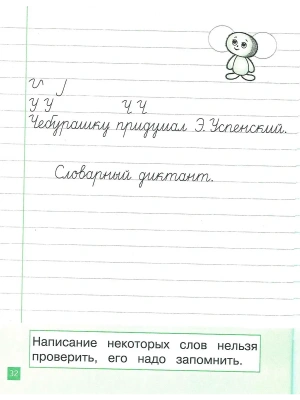 У У Ч Ч
Чебурашку придумал Э. Успенский.
Словарный диктант.
Написание некоторых слов нельзя
проверить, его надо запомнить.
32